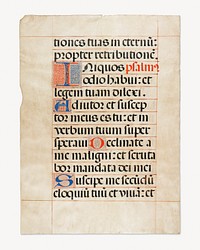 tiones tuas in eternũ:
propter retributionẽ.
INiquos psalm⁹
odio habui: et
legem tuam dilexi.
Adiutor et suscep
tor meus es tu: et in
verbum tuum super
speraui Declinate a
me maligni: et scruta
bor mandata dei mei
Suscipe me secũdũ
eloquiũ tuũ et viuã: et